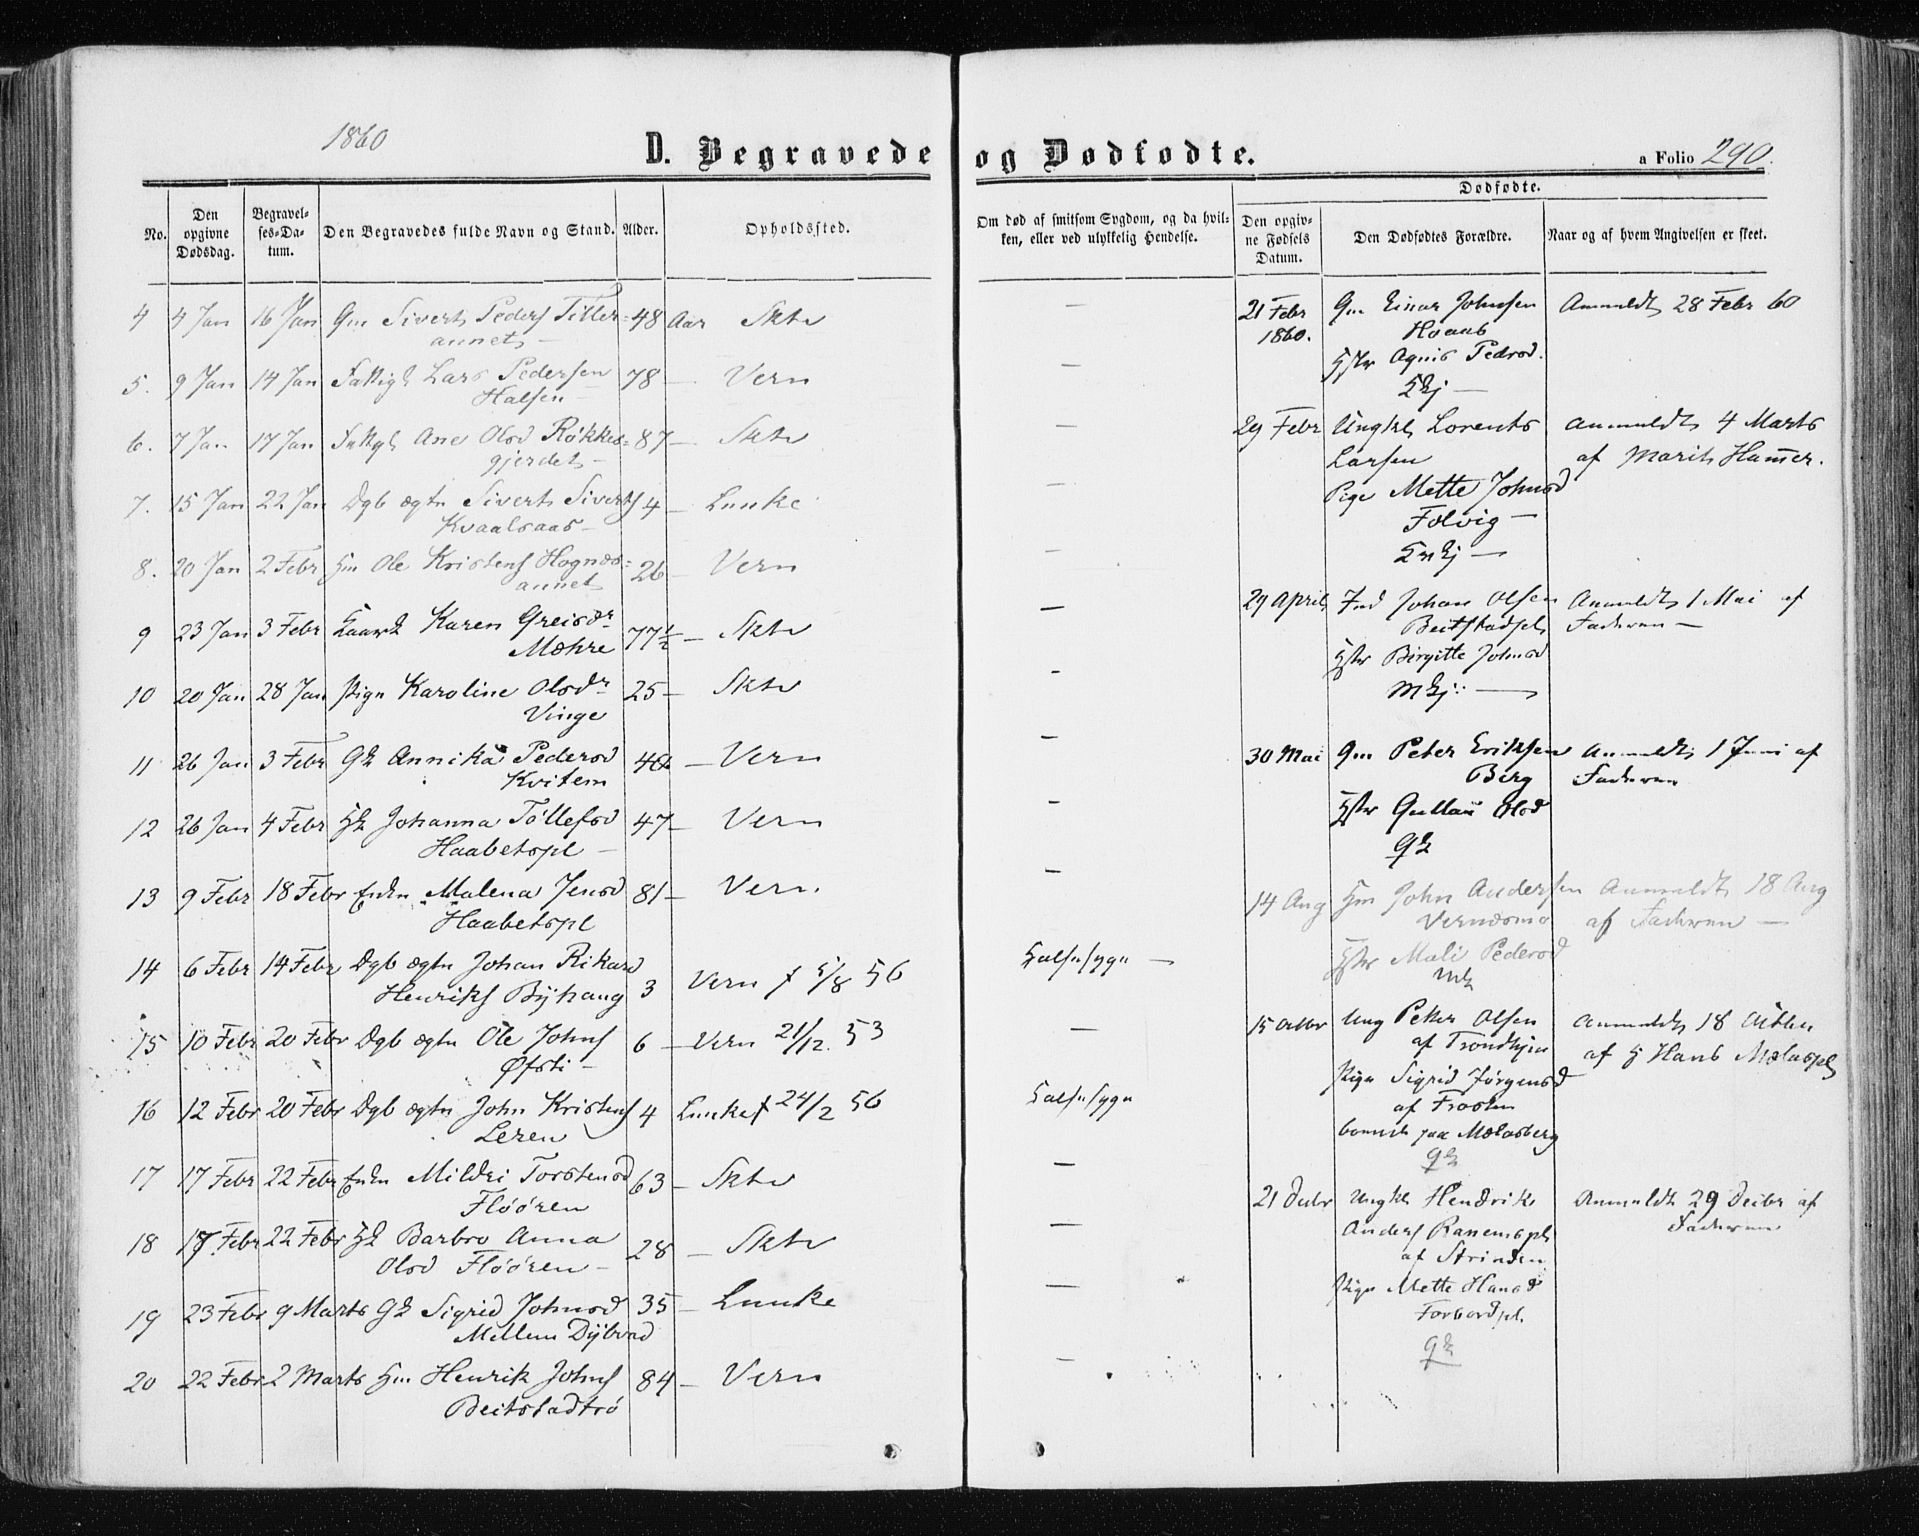 1860
D. Begravede og Dødfødte.
a Folio 290.
No.
Den opgivne Dødsdag.
Begravelses-Datum.
Den Begravedes fulde Navn og Stand.
Alder.
Opholdssted.
Om død af smitsom Sygdom, og da hvilken, eller ved ulykkelig Hendelse.
Dødfødte.
Den opgivne Fødsels Datum.
Den Dødfødtes Forældre.
Naar og af hvem Angivelsen er skeet.
4 4 Jan 16 Jan Gm Sivert Peders Tiller= 48 Aar Sktv —
annet —
5. 9 Jan 14 Jan Fattigl Lars Pedersen 78 — Vern —
Halsen —
6. 7 Jan 17 Jan Ane Olsd Røkkes= 87 — Sktv —
gjerdet —
7. 15 Jan 22 Jan Dgb ægtn Sivert Siverts 4 — Lunke —
Kvaalsaas —
8. 20 Jan 2 Febr Hm Ole Kristens Hognes= 26 — Vern —
annet
9 23 Jan 3 Febr Kaark Karen Greisdr 77½ — Sktv —
Mæhre
10 20 Jan 28 Jan Pign Karoline Olsdr 25 — Sktv —
Vinge
11 26 Jan 3 Febr Gk Annika Pedersd — Vern —
Kvitem
12 26 Jan 4 Febr Hk Johanna Tøllefsd 47 — Vern —
Haabetspl —
13 9 Febr 18 Febr Enkn Malena Jensd 81 — Vern. —
Haabetspl
14 6 Febr 14 Febr Dgb ægtn Johan Rikard 3 Vern f 5/8 56 Halssygn —
Henriks Byhaug
15 10 Febr 20 Febr Dgb ægtn Ole Johns 6 — Vern 21/12. 53 —
Øfsti —
16 12 Febr 20 Febr Dgb ægtn John Kristens 4 Lunke f 24/2 56 Halssygn
Leren
17 17 Febr 22 Febr Enkn Mildri Torstensd 63 — Sktv —
Fløøren
18 17 Febr 22 Febr Hk Barbro Anna 28 — Sktv —
Olsd Fløøren —
19 23 Febr 9 Marts Gk Sigrid Johnsd 35 — Lunke —
Mellem Dybvad
20 22 Febr 2 Marts Hm Henrik Johns 84 — Vern —
Beitstadtrø
21 Febr 1860. Gm Einar Johnsen Anmeldt 28 Febr 60
Hvaas
Hstr Agnis Pedrsd.
29 Febr Ungkl Lorents Anmeldt 4 Marts
Larsen af Marit Hammer.
Pige Mette Johnsd
Folvig —
29 April Ind Johan Olsen Anmeldt 1 Mai af
Beitstadspl Faderen —
Hstr Birgitte Johnsd
30 Mai Gm Peter Eriksen Anmeldt 1 Juni af
Berg Faderen
Hstr Olsd
Gk
14 Aug Hm John Andersen Anmeldt 18 Aug
Vernæsmo af Faderen —
Hstr Mali Pedersd
Mk
15 Octbr Ung Peter Olsen Anmeldt 18 Octbr
af Trondhjem af H Hans Mælaspl
Pign Sigrid Jørgensd
af Frosten
boende paa Mælasberg
Gk
21 Decbr Ungkl Hendrik Anmeldt 29 Decbr af
Anders Ranemspl Faderen
af Strinden
Pign Mette Hansd
Forbordpl.
Gk